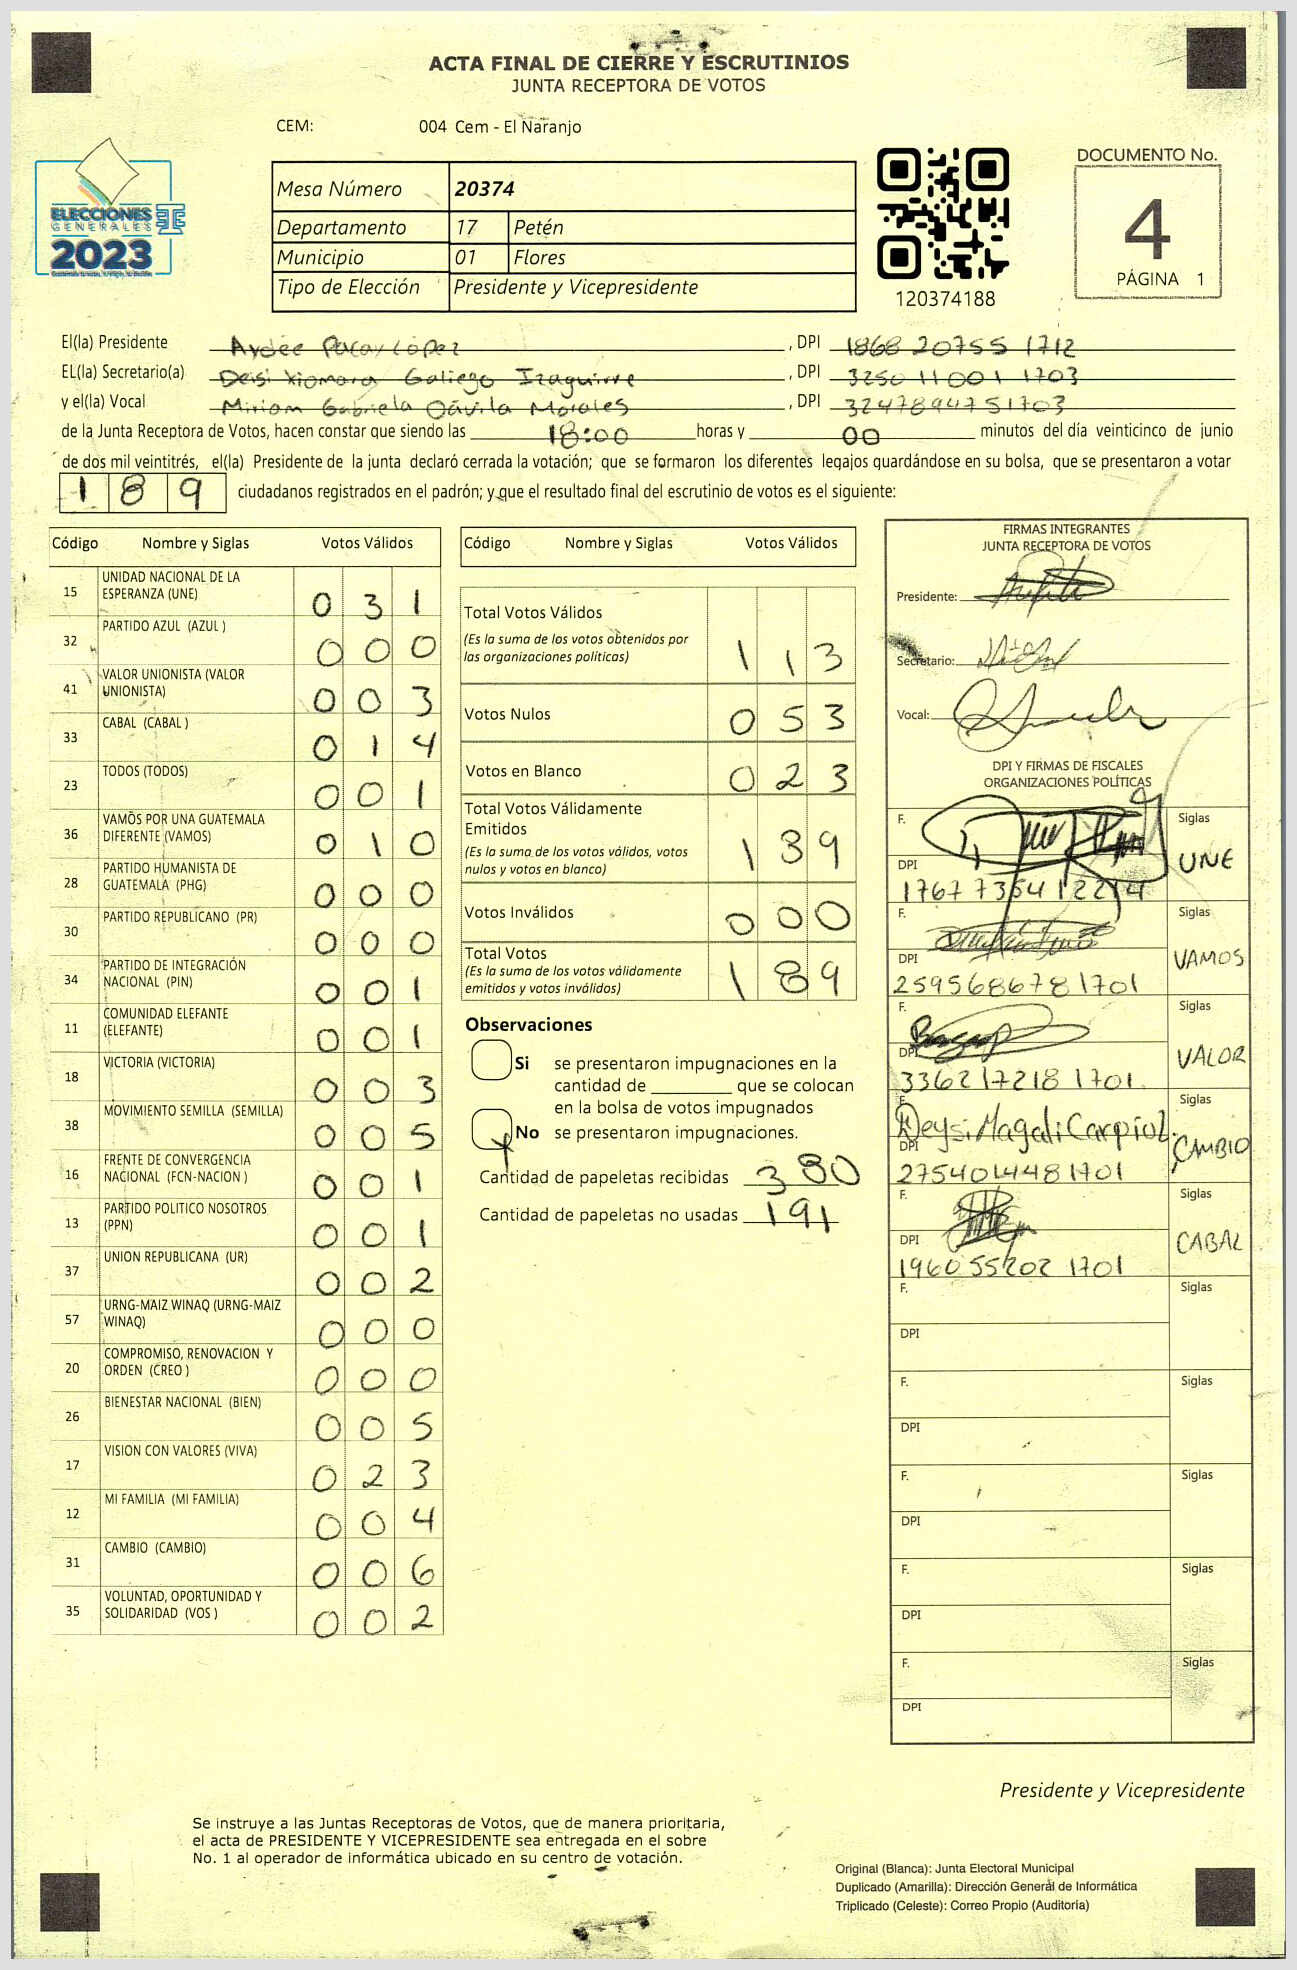 ACTA FINAL DE CIERRE Y ESCRUTINIOS
JUNTA RECEPTORA DE VOTOS
CEM: 004 Cem - El Naranjo
ELECCIONES
GENERALES
2023
Mesa Número 20374
Departamento 17 Petén
Municipio 01 Flores
Tipo de Elección Presidente y Vicepresidente
120374188
DOCUMENTO No.
4
PÁGINA 1
El(la) Presidente Aydée Pacay López, DPI 1868 20755 1712
EL(la) Secretario(a) Deisi Xiomara Galiego Izaguirre, DPI 3250 11001 1703
y el(la) Vocal Miriam Gabriela Dávila Morales, DPI 3247894751703
de la Junta Receptora de Votos, hacen constar que siendo las 18:00 horas y 00 minutos del día veinticinco de junio
de dos mil veintitrés, el(la) Presidente de la junta declaró cerrada la votación; que se formaron los diferentes legajos guardándose en su bolsa, que se presentaron a votar
189 ciudadanos registrados en el padrón; y que el resultado final del escrutinio de votos es el siguiente:
Código Nombre y Siglas Votos Válidos
15 UNIDAD NACIONAL DE LA ESPERANZA (UNE) 0 3 1
32 PARTIDO AZUL (AZUL ) 0 0 0
41 VALOR UNIONISTA (VALOR UNIONISTA) 0 0 3
33 CABAL (CABAL ) 0 1 4
23 TODOS (TODOS) 0 0 1
36 VAMOS POR UNA GUATEMALA DIFERENTE (VAMOS) 0 1 0
28 PARTIDO HUMANISTA DE GUATEMALA (PHG) 0 0 0
30 PARTIDO REPUBLICANO (PR) 0 0 0
34 PARTIDO DE INTEGRACIÓN NACIONAL (PIN) 0 0 1
11 COMUNIDAD ELEFANTE (ELEFANTE) 0 0 1
18 VICTORIA (VICTORIA) 0 0 3
38 MOVIMIENTO SEMILLA (SEMILLA) 0 0 5
16 FRENTE DE CONVERGENCIA NACIONAL (FCN-NACION ) 0 0 1
13 PARTIDO POLITICO NOSOTROS (PPN) 0 0 1
37 UNION REPUBLICANA (UR) 0 0 2
57 URNG-MAIZ WINAQ (URNG-MAIZ WINAQ) 0 0 0
20 COMPROMISO, RENOVACION Y ORDEN (CREO ) 0 0 0
26 BIENESTAR NACIONAL (BIEN) 0 0 5
17 VISION CON VALORES (VIVA) 0 2 3
12 MI FAMILIA (MI FAMILIA) 0 0 4
31 CAMBIO (CAMBIO) 0 0 6
35 VOLUNTAD, OPORTUNIDAD Y SOLIDARIDAD (VOS ) 0 0 2
Código Nombre y Siglas Votos Válidos
Total Votos Válidos
(Es la suma de los votos obtenidos por
las organizaciones políticas) 1 1 3
Votos Nulos 0 5 3
Votos en Blanco 0 2 3
Total Votos Válidamente
Emitidos
(Es la suma de los votos válidos, votos
nulos y votos en blanco) 1 89
Votos Inválidos 0 0 0
Total Votos
(Es la suma de los votos válidamente
emitidos y votos inválidos) 1 8 9
Observaciones
Si se presentaron impugnaciones en la
cantidad de ________ que se colocan
en la bolsa de votos impugnados
No se presentaron impugnaciones.
Cantidad de papeletas recibidas 380
Cantidad de papeletas no usadas 191
FIRMAS INTEGRANTES
JUNTA RECEPTORA DE VOTOS
Presidente:
Secretario:
Vocal:
DPI Y FIRMAS DE FISCALES
ORGANIZACIONES POLÍTICAS
F. Siglas
UNE
DPI
1767 73541 2214
F. Siglas
VAMOS
DPI
2595686781701
F. Siglas
VALOR
DPI
3362172181701
F. Siglas
Deysi Magali Carpio L.
CAMBIO
DPI
2754014481701
F. Siglas
CABAL
DPI
1960 55202 1701
F. Siglas
DPI
F. Siglas
DPI
F. Siglas
DPI
F. Siglas
DPI
F. Siglas
DPI
Presidente y Vicepresidente
Se instruye a las Juntas Receptoras de Votos, que de manera prioritaria,
el acta de PRESIDENTE Y VICEPRESIDENTE sea entregada en el sobre
No. 1 al operador de informática ubicado en su centro de votación.
Original (Blanca): Junta Electoral Municipal
Duplicado (Amarilla): Dirección General de Informática
Triplicado (Celeste): Correo Propio (Auditoría)